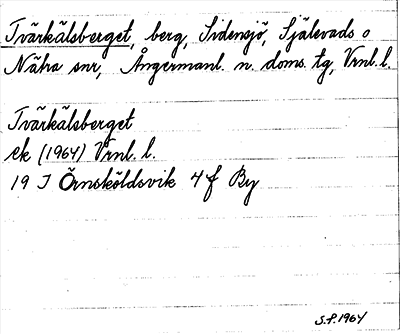 Tvärkälsberget, berg, Sidensjö, Själevads o
Nätra snr, Ångermanl. n. doms. tg, Vrnl. l.
Tvärkälsberget
ek (1964) Vrnl. l.
19 J Örnsköldsvik 4 f By
S.P. 1964